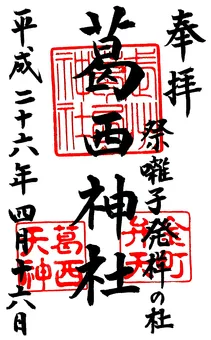 奉拝
祭囃子発祥の杜
葛西神社
平成二十六年四月十六日
金町弁天
葛西天神